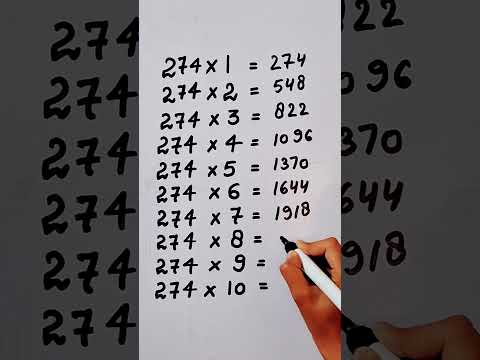 274 x 1 = 274
274 x 2 = 548
274 x 3 = 822
274 x 4 = 1096
274 x 5 = 1370
274 x 6 = 1644
274 x 7 = 1918
274 x 8 =
274 x 9 =
274 x 10 =